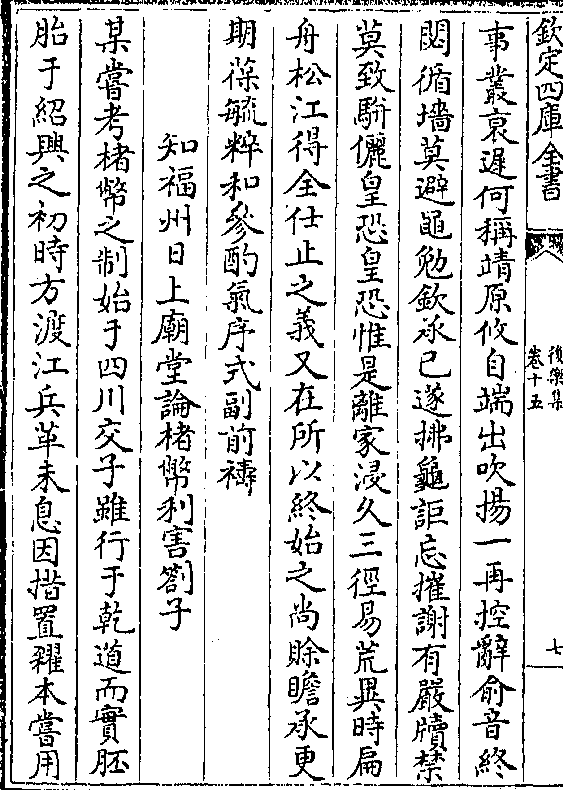 欽定四庫全書
後樂集
卷十五
七
事叢衰遲何稱靖原攸自端出吹揚一再控辭俞音終
閟循墻莫避黽勉欽承已遂拂龜詎忘摧謝有嚴牘禁
莫致駢儷皇恐皇恐惟是離家浸久三徑易荒異時扁
舟松江得全仕止之義又在所以終始之尚賒瞻承更
期葆毓粹和參酌氣序式副前禱
知福州日上廟堂論楮幣利害劄子
某嘗考楮幣之制始于四川交子雖行于乾道而實胚
胎于紹興之初時方渡江兵革未息因措置糴本嘗用